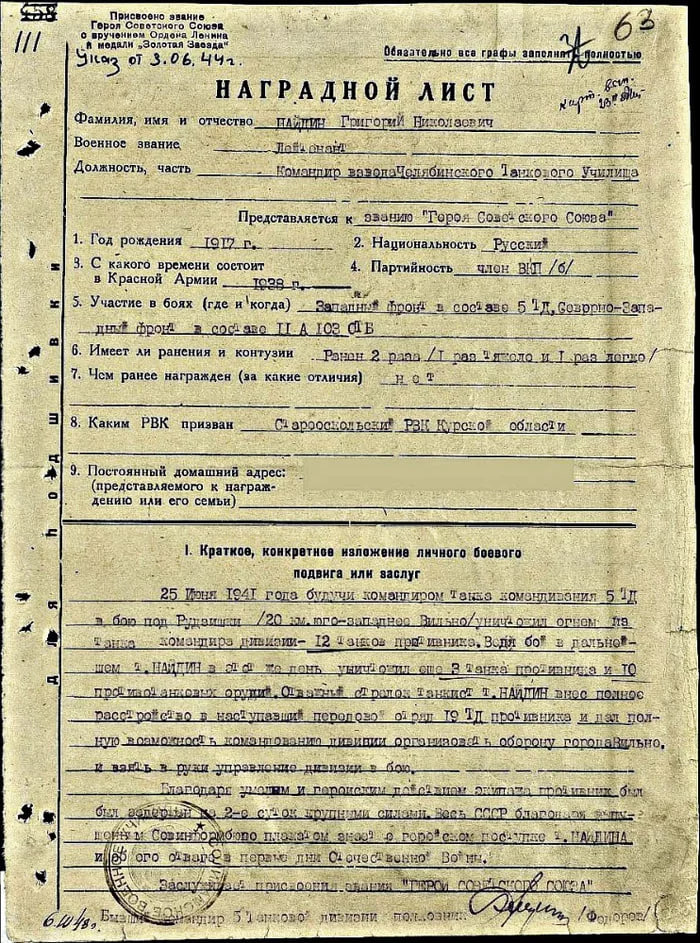 Присвоено звание
Героя Советского Союза
с вручением Ордена Ленина
и медали „Золотая Звезда"
Указ от 3.06.44г.
III
63
Обязательно все графы заполнять полностью
НАГРАДНОЙ ЛИСТ
Фамилия, имя и отчество НАЙДИН Григорий Николаевич
Военное звание Лейтенант
Должность, часть Командир взвода Челябинского Танкового Училища
Представляется к званию "Героя Советского Союза"
1. Год рождения 1917 г. 2. Национальность Русский
3. С какого времени состоит в Красной Армии 1938 г. 4. Партийность член ВКП /б/
5. Участие в боях (где и когда) Западный фронт в составе 5 ТД, Северно-Запа-
дный фронт в составе II А 103 ОТБ
6. Имеет ли ранения и контузии Ранен 2 раза /I раз тяжело и I раз легко/
7. Чем ранее награжден (за какие отличия) нет
8. Каким РВК призван Старооскольский РВК Курской области
9. Постоянный домашний адрес:
(представляемого к награж-
дению или его семьи)
для подшивки
I. Краткое, конкретное изложение личного боевого
подвига или заслуг
25 Июня 1941 года будучи командиром танка командивания 5 ТД
в бою под Рудзишки /20 км.юго-западнее Вильно/уничтожил огнем из
танка командира дивизии- 12 танков противника. Ведя бой в дальней-
шем т. НАЙДИН в этот же день уничтожил еще 3 танка противника и 10
противотанковых орудий. Отважный стрелок танкист т. НАЙДИН внес полное
расстройство в наступавший передовой отряд 19 ТД противника и дал пол-
ную возможность командованию дивизии организовать оборону города Вильно,
и взять в руки управление дивизии в бою.
Благодаря умелым и геройским действием экипажа противник был
был задержан на 2-е суток крупными силами. Весь СССР благодаря выпу-
щенным Совинформбюро плакатом знает о геройском поступке т. НАЙДИНА
и его отваге в первые дни Отечественной Войны.
Заслуживает присвоения звания "ГЕРОЯ СОВЕТСКОГО СОЮЗА"
Бывший командир 5 Танковой дивизии полковник /Федоров/